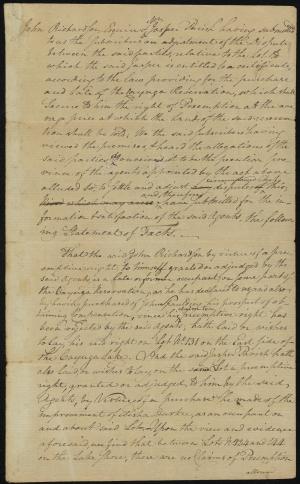 John Richardson Esquire & Jasper Parish having submitted
to us the subscribers an adjustment of the Dispute
between the said parties, relative to the Lot to
which the said Jasper is entitled to a certificate,
according to the Law providing for the purchase
and Sale of the Cayuga Reservation, which shall
secure to him the right of Preemption at the ave
rage price at which the Lands of the said reserva
tion shall be sold, We the said subscribers having
viewed the premises, & heard the allegations of the
said parties & conceived it to be the peculiar pro
vince of the agents appointed by the act above
alluded to, to settle and adjust disputes of this
kind which may arise, have submitted for the in
formation & satisfaction of the said Agents the follow
ing Statement of Facts.
That the said John Richardson by virtue of a pre
emptive right to himself granted or adjudged by the
said Agents, as a late merchant, on some part of
the Cayuga Reservation, as he has declared to us, and also
by having purchased of John Paulding his prospect of ob
taining compensation, or preemptive right has
been rejected by the said agents, hath laid or wishes
to lay his said right on Lot No. 131 on the East side of
the Cayuga Lake. And the said Jasper Parish hath
also laid or wishes to lay, on the same Lot a preemptive
right, granted or adjudged to him by the said
Agents, by Virtue of a purchase he made of the
improvement of Elisha as an occupant on
and about said Lot. Upon the view and evidence
aforesaid we find that between Lots No. 134 and 144
on the Lake Shore, there are no Claims of Preemption